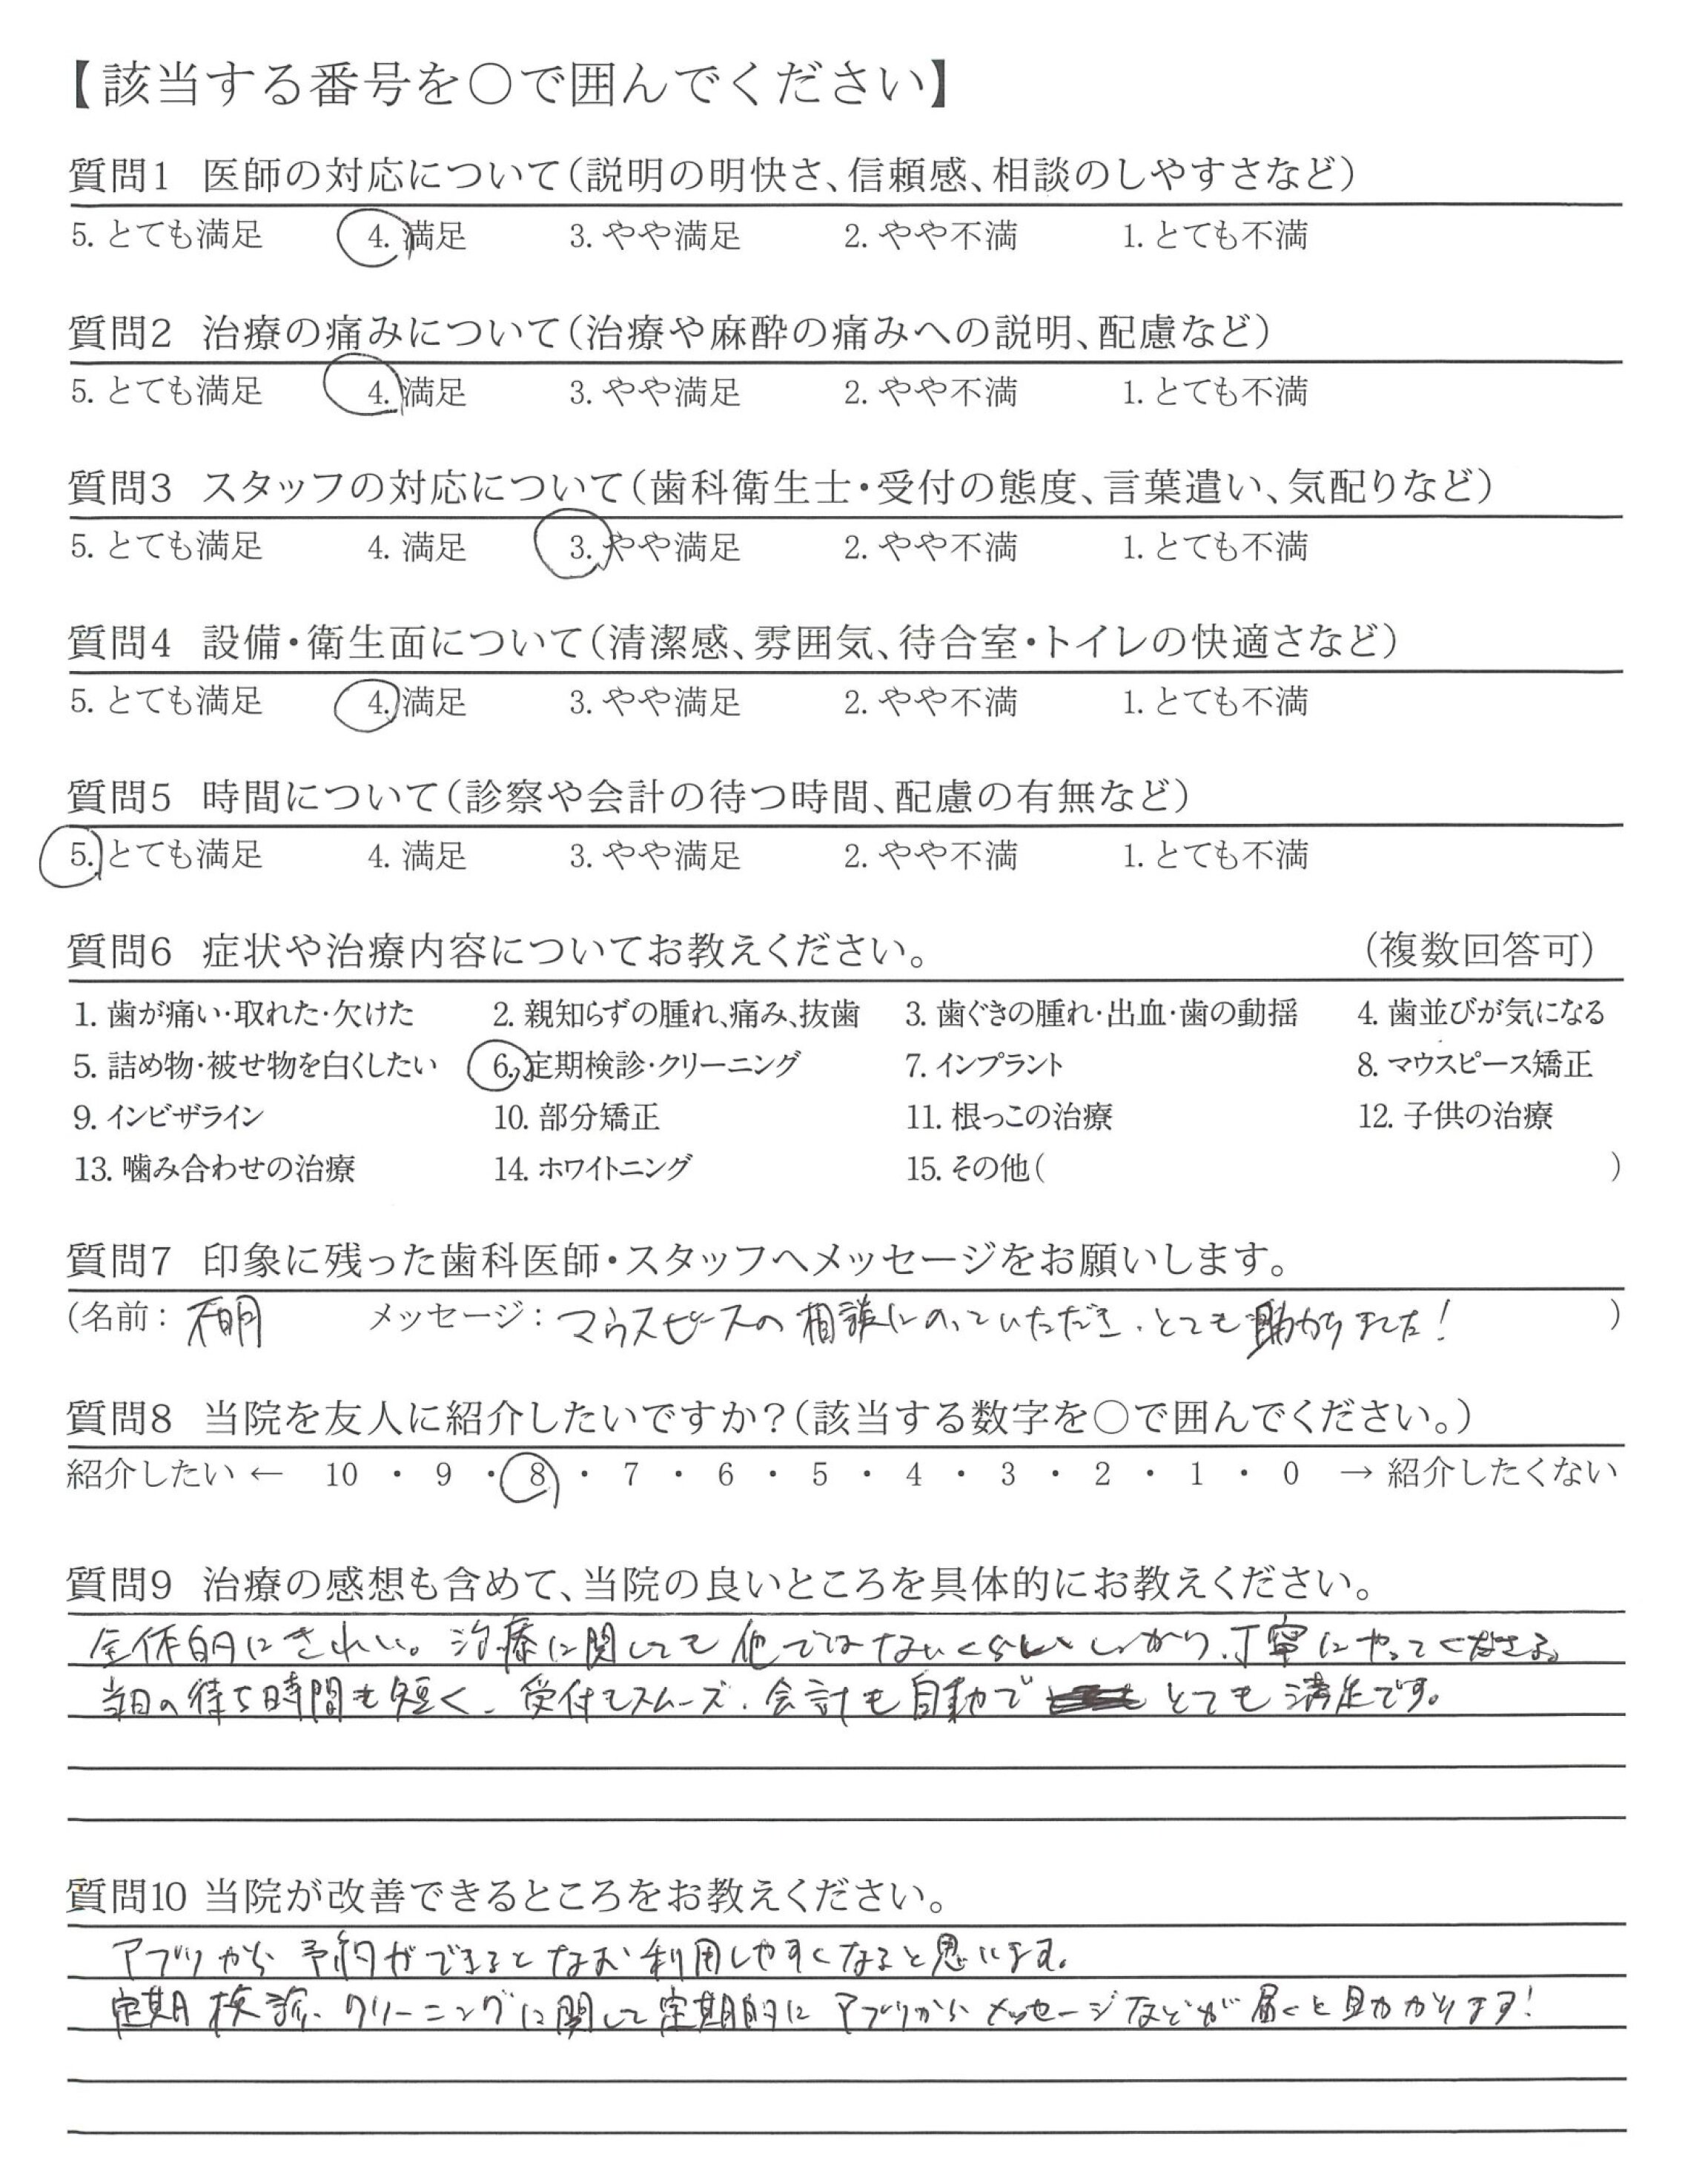 【該当する番号を〇で囲んでください】
質問1 医師の対応について(説明の明快さ、信頼感、相談のしやすさなど)
5. とても満足 4. 満足 3. やや満足 2. やや不満 1. とても不満
質問2 治療の痛みについて(治療や麻酔の痛みへの説明、配慮など)
5. とても満足 4. 満足 3. やや満足 2. やや不満 1. とても不満
質問3 スタッフの対応について(歯科衛生士・受付の態度、言葉遣い、気配りなど)
5. とても満足 4. 満足 3. やや満足 2. やや不満 1. とても不満
質問4 設備・衛生面について(清潔感、雰囲気、待合室・トイレの快適さなど)
5. とても満足 4. 満足 3. やや満足 2. やや不満 1. とても不満
質問5 時間について(診察や会計の待つ時間、配慮の有無など)
5. とても満足 4. 満足 3. やや満足 2. やや不満 1. とても不満
質問6 症状や治療内容についてお教えください。 (複数回答可)
1. 歯が痛い・取れた・欠けた 2. 親知らずの腫れ、痛み、抜歯 3. 歯ぐきの腫れ・出血・歯の動揺 4. 歯並びが気になる
5. 詰め物・被せ物を白くしたい 6. 定期検診・クリーニング 7. インプラント 8. マウスピース矯正
9. インビザライン 10. 部分矯正 11. 根っこの治療 12. 子供の治療
13. 噛み合わせの治療 14. ホワイトニング 15. その他( )
質問7 印象に残った歯科医師・スタッフへメッセージをお願いします。
(名前: 不明 メッセージ: マウスピースの相談にのっていただき、とても助かりました! )
質問8 当院を友人に紹介したいですか?(該当する数字を〇で囲んでください。)
紹介したい ← 10 ・ 9 ・ 8 ・ 7 ・ 6 ・ 5 ・ 4 ・ 3 ・ 2 ・ 1 ・ 0 → 紹介したくない
質問9 治療の感想も含めて、当院の良いところを具体的にお教えください。
全体的にきれい。治療に関しても他ではないくらい しっかり、丁寧にやってくださる。
当日の待ち時間も短く、受付もスムーズ、会計も自動で とても満足です。
質問10 当院が改善できるところをお教えください。
アプリから予約ができるとなお利用しやすくなると思います。
定期検診、クリーニングに関して定期的にアプリからメッセージなどが届くと助かります!